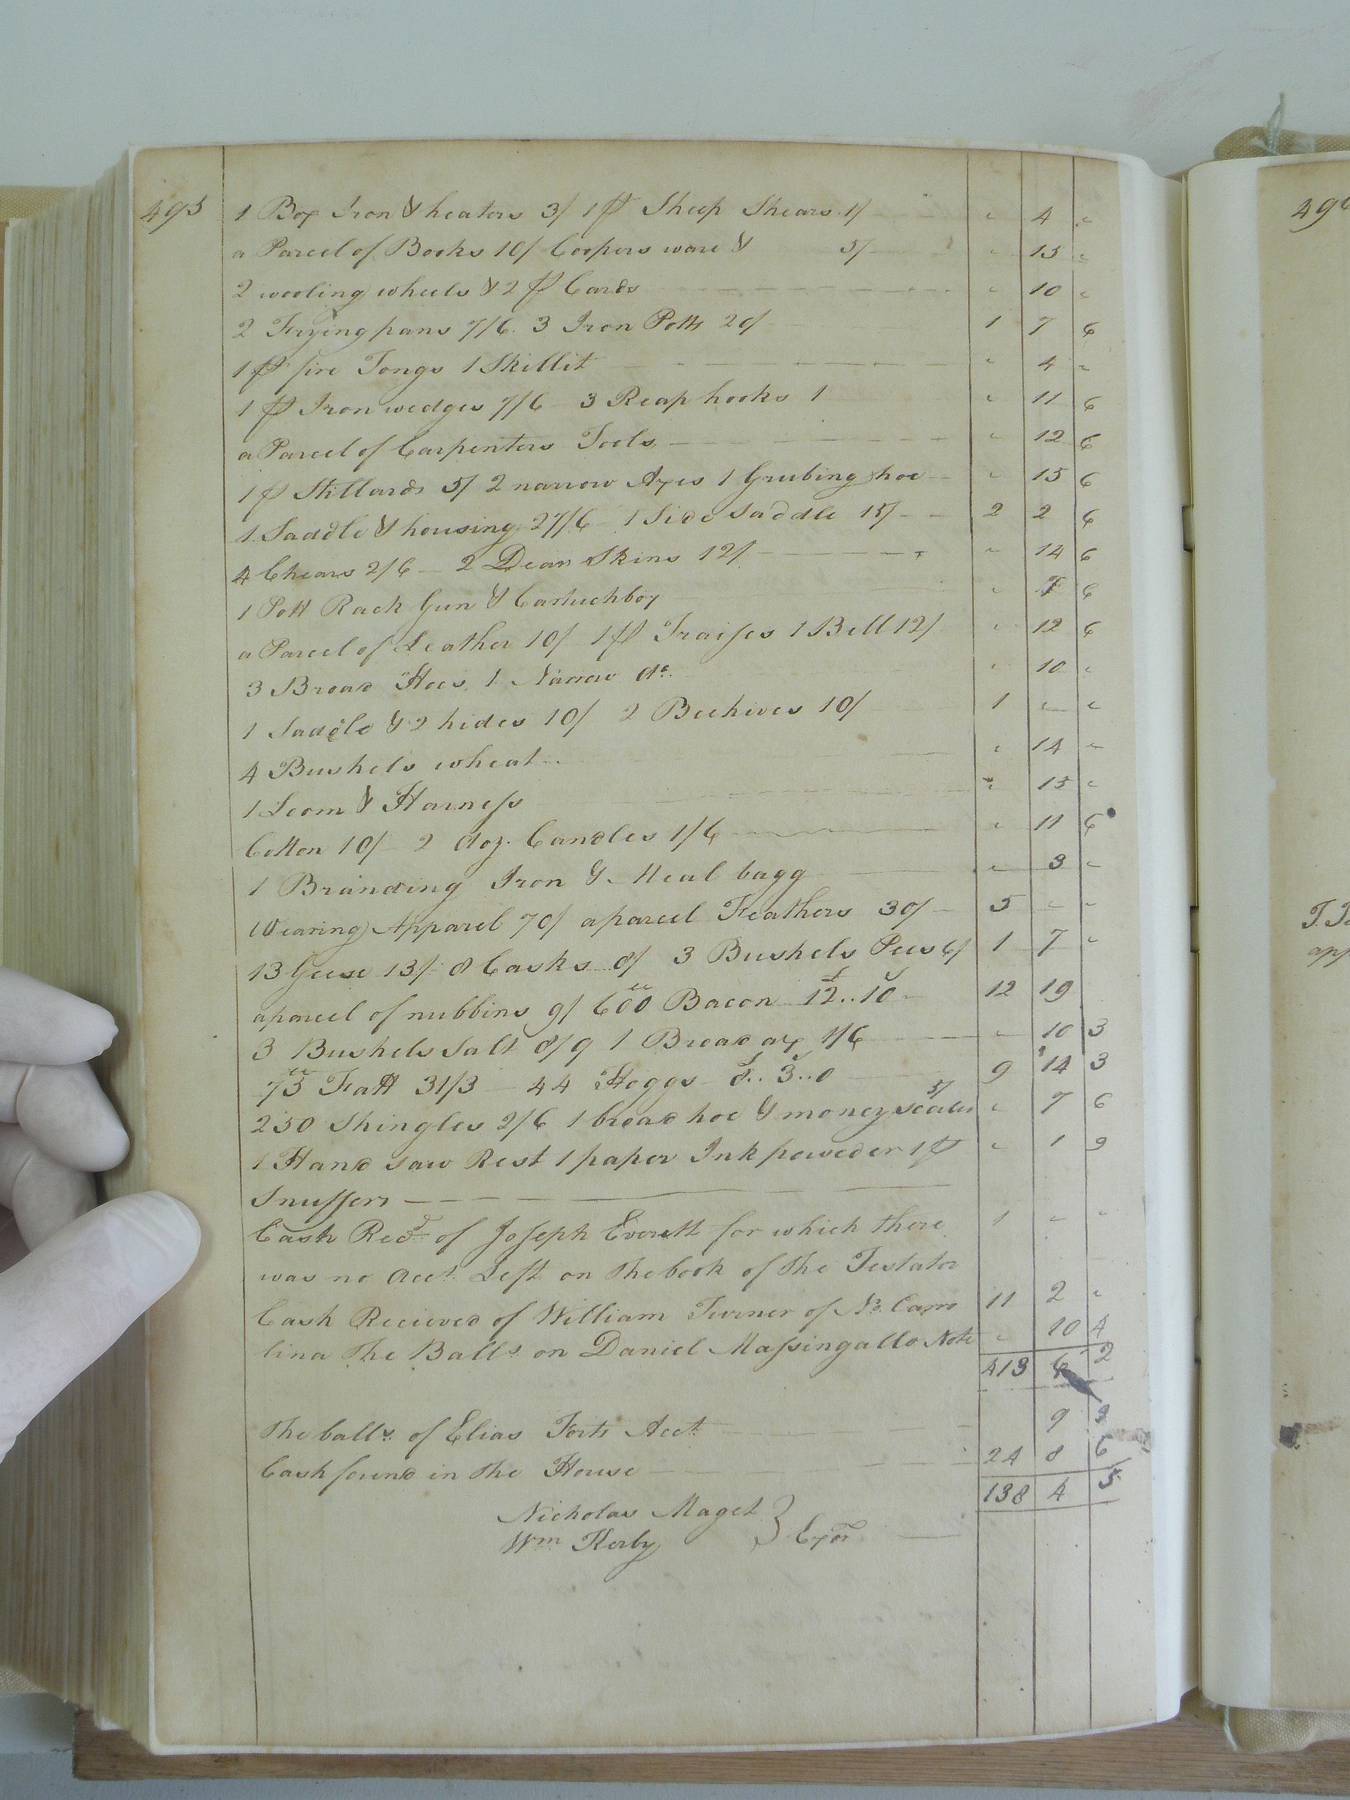 495
1 Box Iron & heaters 3/ 1 pr Sheep Shears 1/ " 4 "
a Parcel of Books 10/ Coopers ware & 5/ " 15 "
2 wooling wheels & 2 pr Cards " 10 "
2 Frying pans 7/6 3 Iron Potts 20/ 1 7 6
1 pr fire Tongs 1 Skillit " 4 "
1 pr Iron wedges 7/6 3 Reap hooks 1 " 11 6
a Parcel of Carpenters Tools " 12 6
1 pr Stillards 5/ 2 narrow Axes 1 Grubing hoe " 15 6
1 Saddle & housing 27/6 1 Side Saddle 15/ 2 2 6
4 Chears 2/6 2 Dear Skins 12/ " 14 6
1 Pott Rack Gun & Cartuchbox " 7 6
a Parcel of Leather 10/ 1 pr Traises 1 Bell 12/ " 12 6
3 Broad Hoes 1 Narrow do. " 10 "
1 Saddle & 2 hides 10/ 2 Beehives 10/ 1 " "
4 Bushels wheat " 14 "
1 Loom & Harness " 15 "
Cotton 10/ 2 doz. Candles 1/6 " 11 6
1 Branding Iron & Meal bagg " 3 "
Wearing Apparel 70/ a parcel Feathers 30/ 5 " "
13 Geese 13/ 8 Casks 8/ 3 Bushels Pees 6/ 1 7 "
a parcel of nubbins 9/ 600 Bacon 12..10 12 19
3 Bushels Salt 8/9 1 Broad ax 1/6 " 10 3
75 Fatt 31/3 44 Hoggs 8..3..0 9 14 3
250 Shingles 2/6 1 broad hoe & money scales 5/ " 7 6
1 Hand saw Rest 1 paper Ink powder 1 pr " 1 9
Snuffers
Cash Recd. of Joseph Everett for which there 1 " "
was no Acct. Left on the book of the Testator
Cash Recieved of William Turner of No. Caro 11 2 "
lina The Balle. on Daniel Massingallo Note " 10 4
413 6 2
The balle. of Elias Forts Acct. 9 9
Cash found in the House 24 8 6
138 4 5
Nicholas Maget
Wm Kerby } Exors